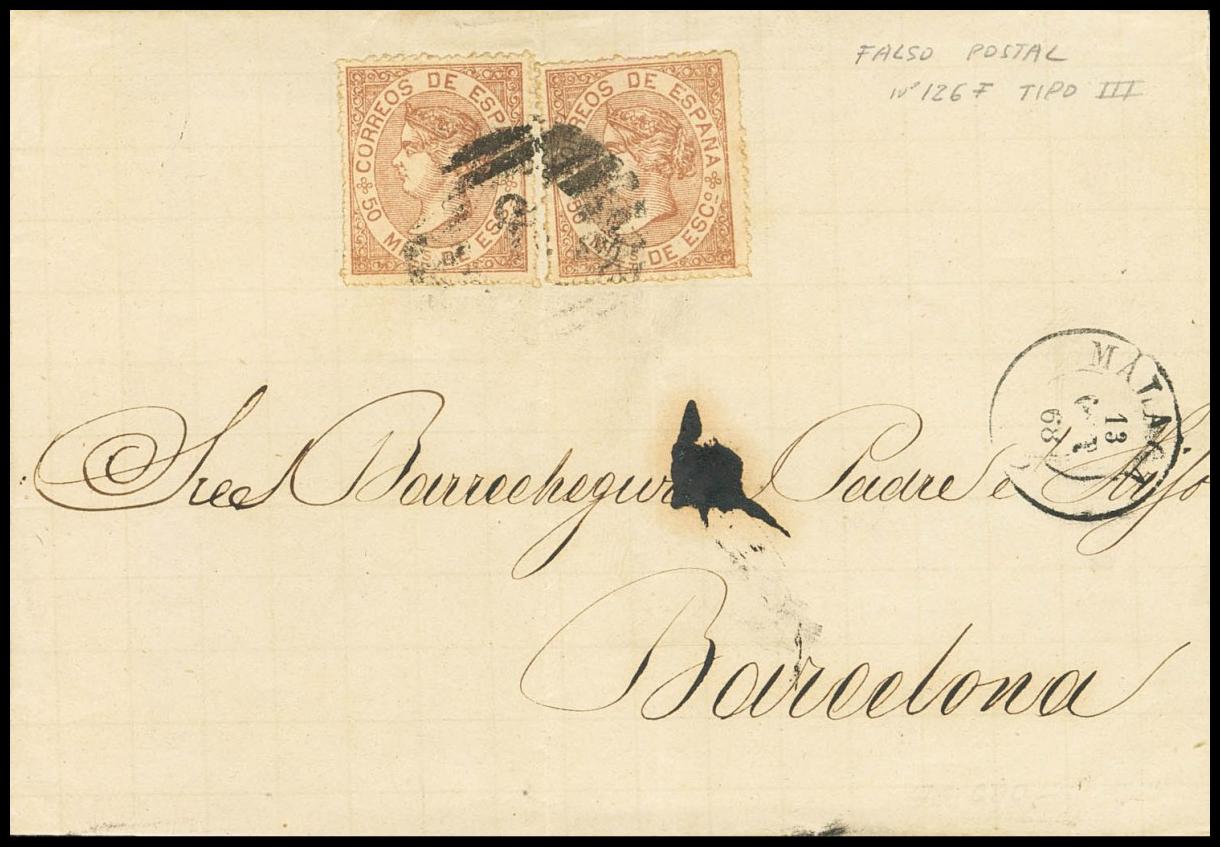 FALSO POSTAL
Nº 126F TIPO III
CORREOS DE ESP
50 MLS DE ES
REOS DE ESPAÑA
50 MLS DE ESCº
MALAGA
13
OCT
68
Sres Barrechegur Padre e Hijo
Barcelona